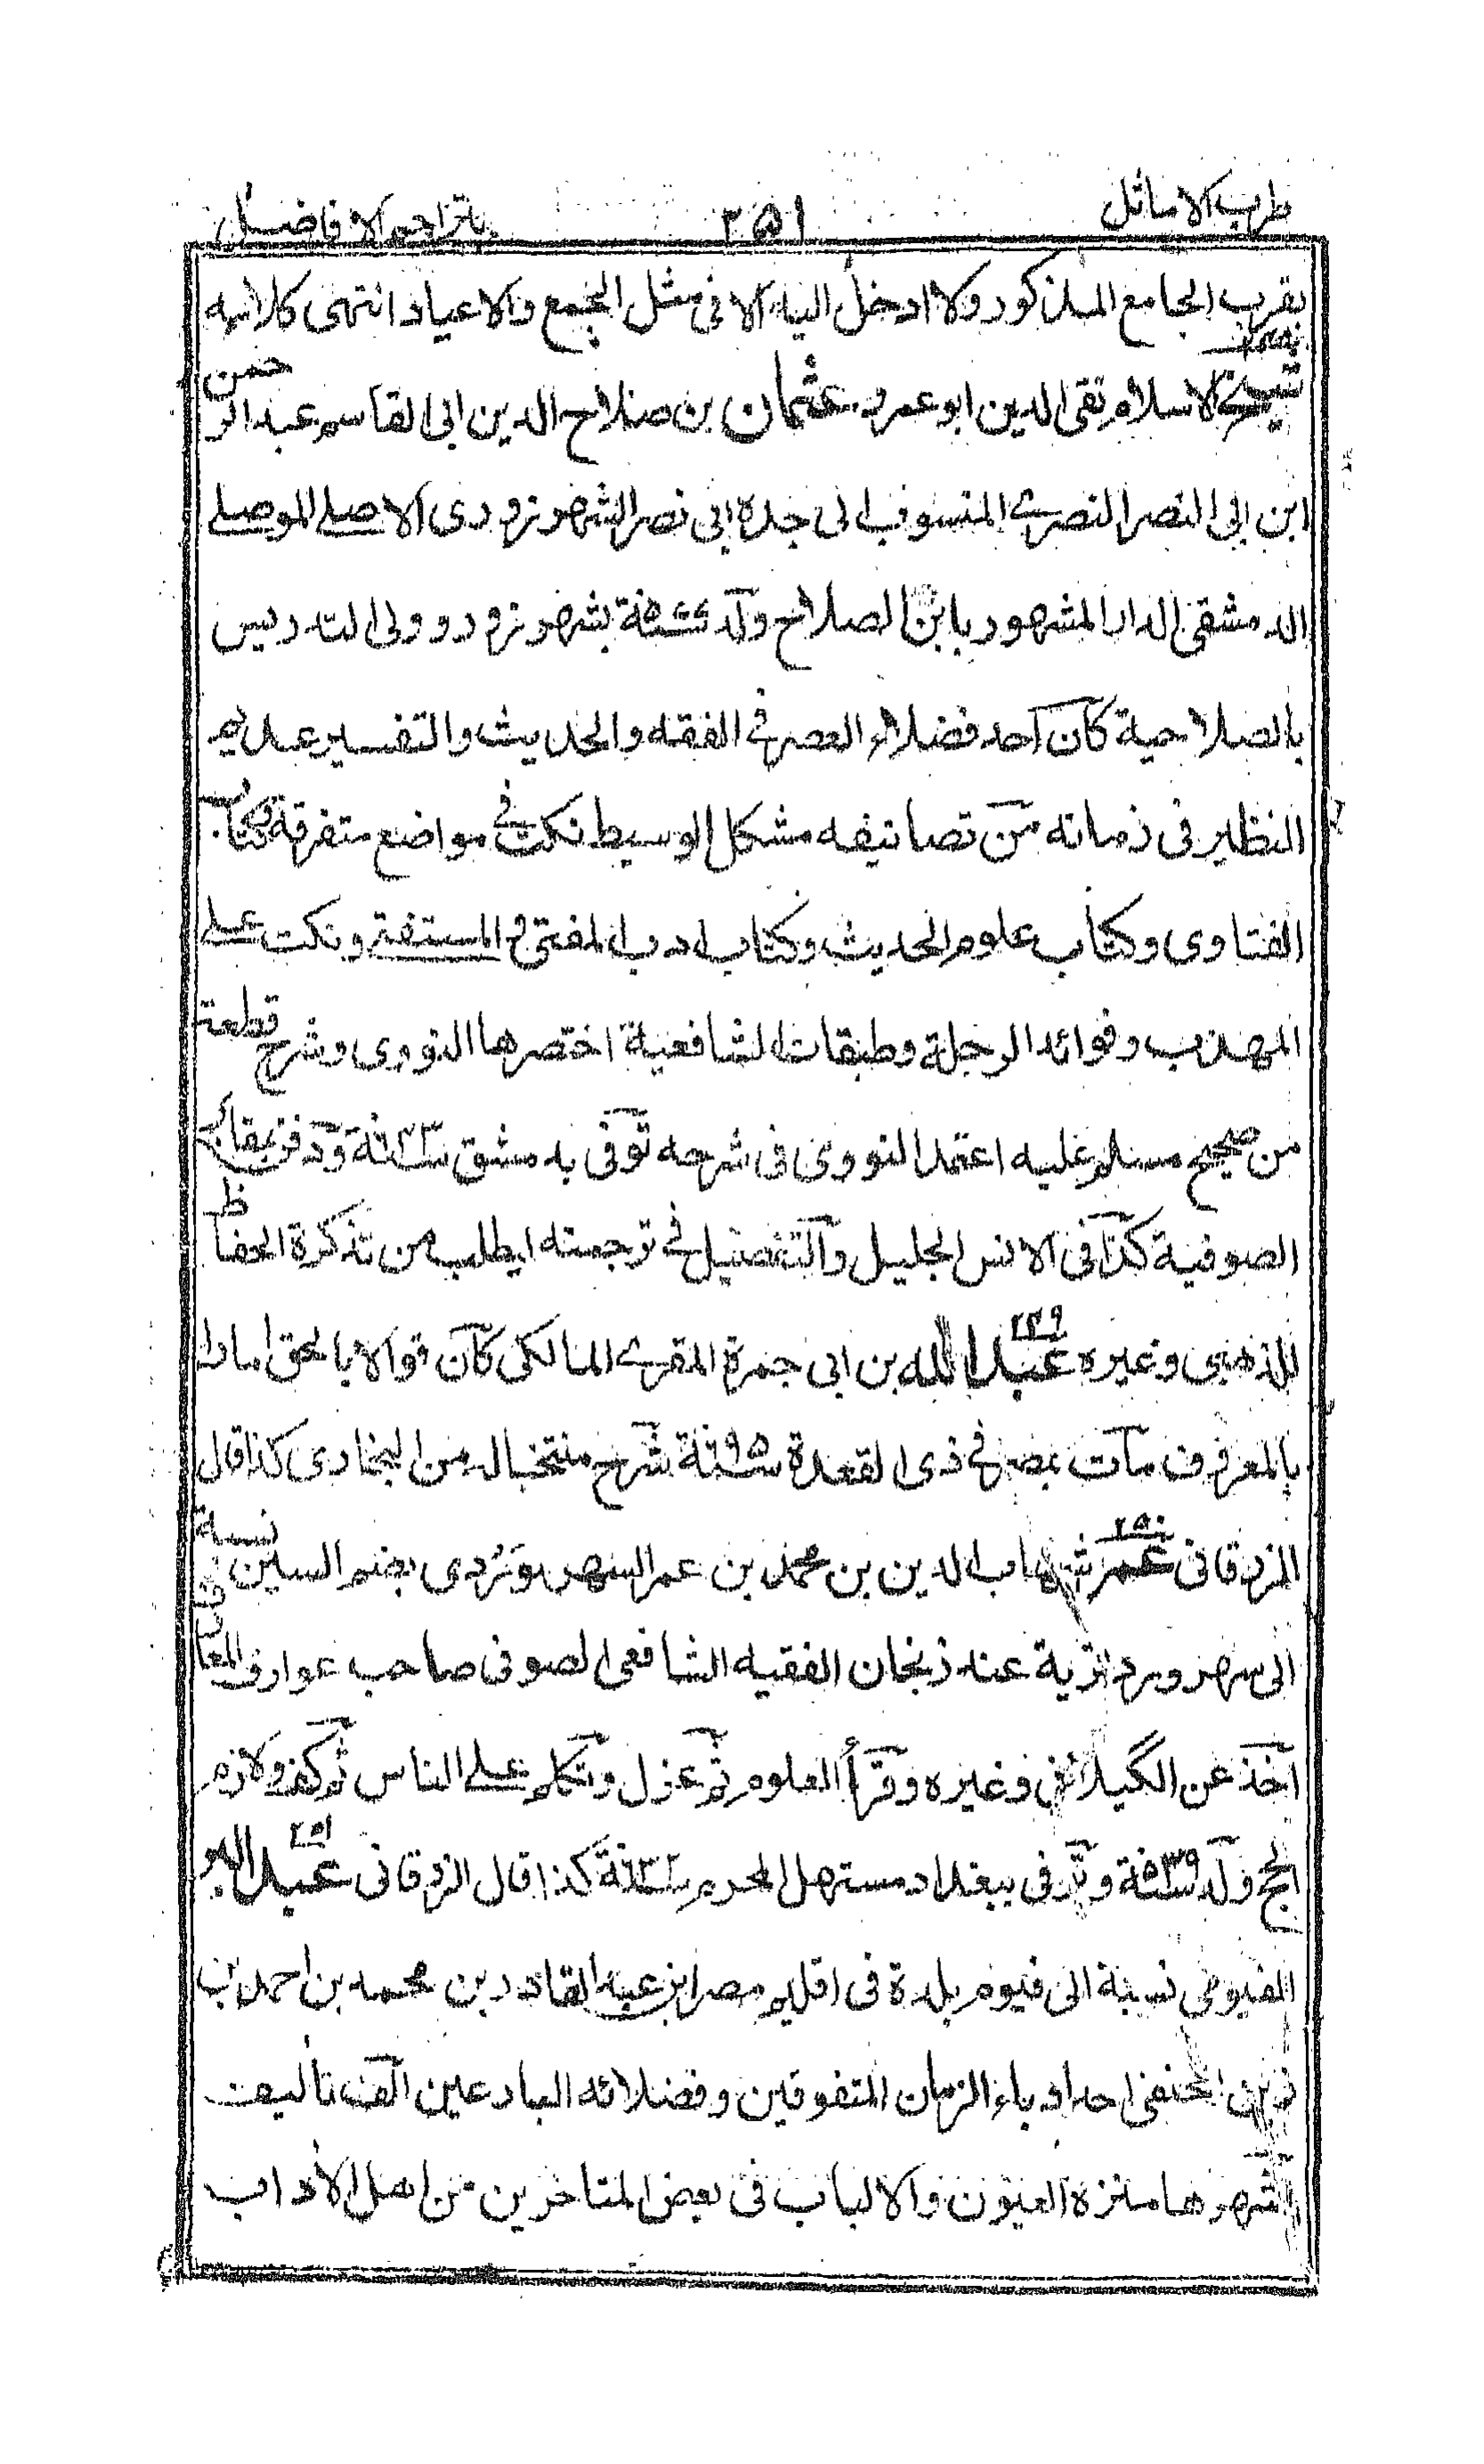 طرب الاماثل ٢٥١ بتراجم الافاضل
بقرب الجامع المذكور ولا ادخل اليه الا فى مثل الجمع والاعياد انتهى كلامه
شيخ الاسلام تقى الدين ابو عمرو عثمان بن صلاح الدين ابى القاسم عبد الرحمن
ابن ابى النصر النصرے المنسوب الى جده ابى نصر الشهرزورى الاصل الموصلے
الدمشقى الدار المشهور بابن الصلاح ولد سنة ٥٧٧ بشهرزور وولى التدريس
بالصلاحية كان احد فضلاء العصر فے الفقه والحديث والتفسير عديم
النظير فى زمانه من تصانيفه مشكل الوسيط نكت فے مواضع متفرقة وكتاب
الفتاوى وكتاب علوم الحديث وكتاب ادب المفتى والمستفتے ونكت علے
المهذب وفوائد الرحلة وطبقات الشافعية اختصرها النووى وشرح قطعة
من صحيح مسلم عليه اعتمد النووى فى شرحه توفى بدمشق سنة ودفن بمقابر
الصوفية كذا فى الانس الجليل والتفصيل فے ترجمته ليطلب من تذكرة الحفاظ
للذهبى وغيره ٢٤٩ عبد الله بن ابى جمرة المقرے المالكى كان قوالا بالحق امارا
بالمعروف مات بمصر فے ذى القعدة سنة ٦٩٥ شرح منتخبا له من البخارى كذا قال
الزرقانى ٢٥٠ عمر شهاب الدين بن محمد بن عمر السهروردى بضم السين نسبة
الى سهرورد قرية عند زنجان الفقيه الشافعى الصوفى صاحب عوارف المعارف
اخذ عن الگيلانى وغيره وقرأ العلوم ثم عزل وتكلم علے الناس ثم كف ولازم
الحج ولد سنة ٥٣٩ وتوفى ببغداد مستهل المحرم سنة ٦٣٢ كذا قال الزرقانى ٢٥١ عبد البر
الفيومى نسبة الى فيوم بلدة فى اقليم مصر ابن عبد القادر بن محمد بن احمد بن
زين الحنفى احد ادباء الزمان المتفوقين وفضلائه البارعين الف تاليف
اشهرها منتزه العيون والالباب فى بعض المتاخرين من اهل الأداب